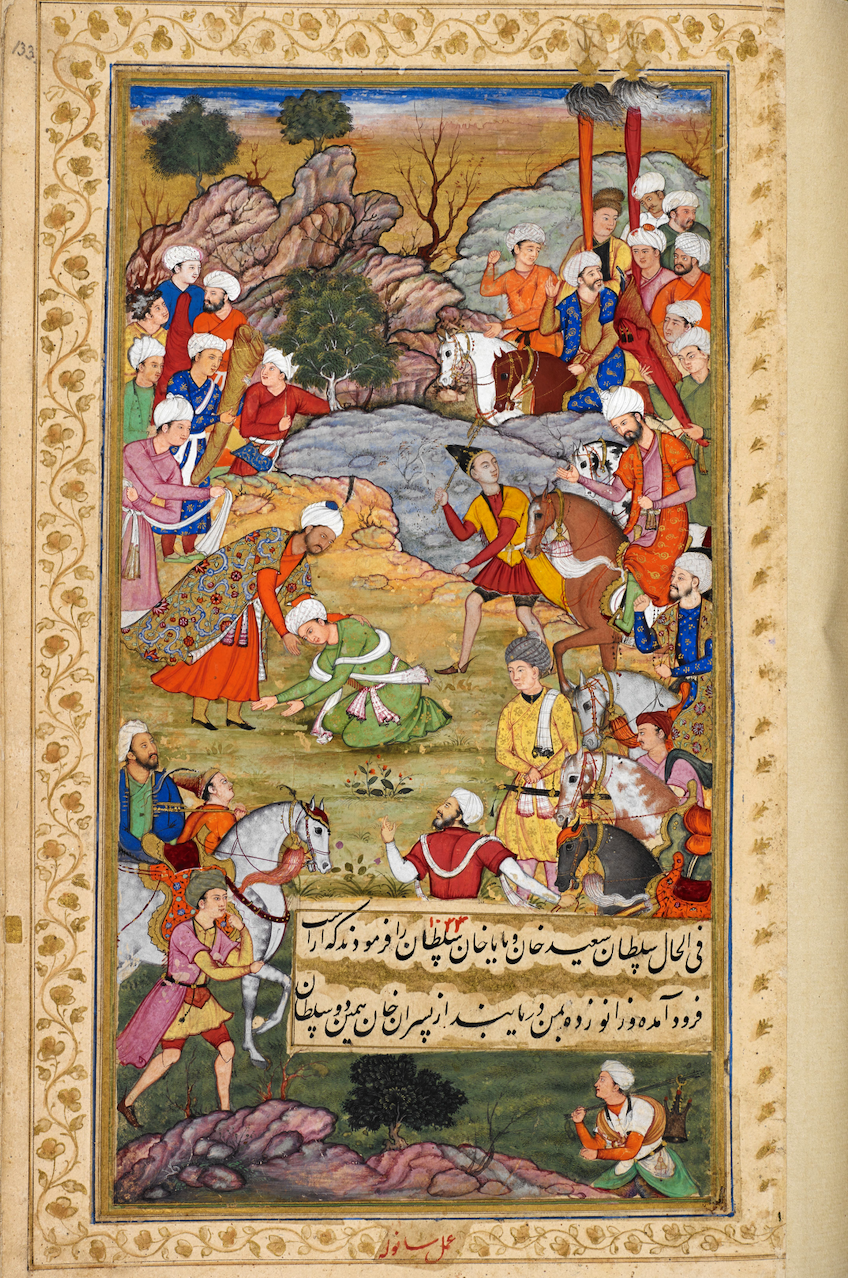 133
۱۰۳۴
فی الحال سلطان سعید خان و بابا خان سلطان را فرمودند که از اسب
فرود آمده و زانو زده بمن دریابند از پسران خان همین دو سلطان
عمل سانوله